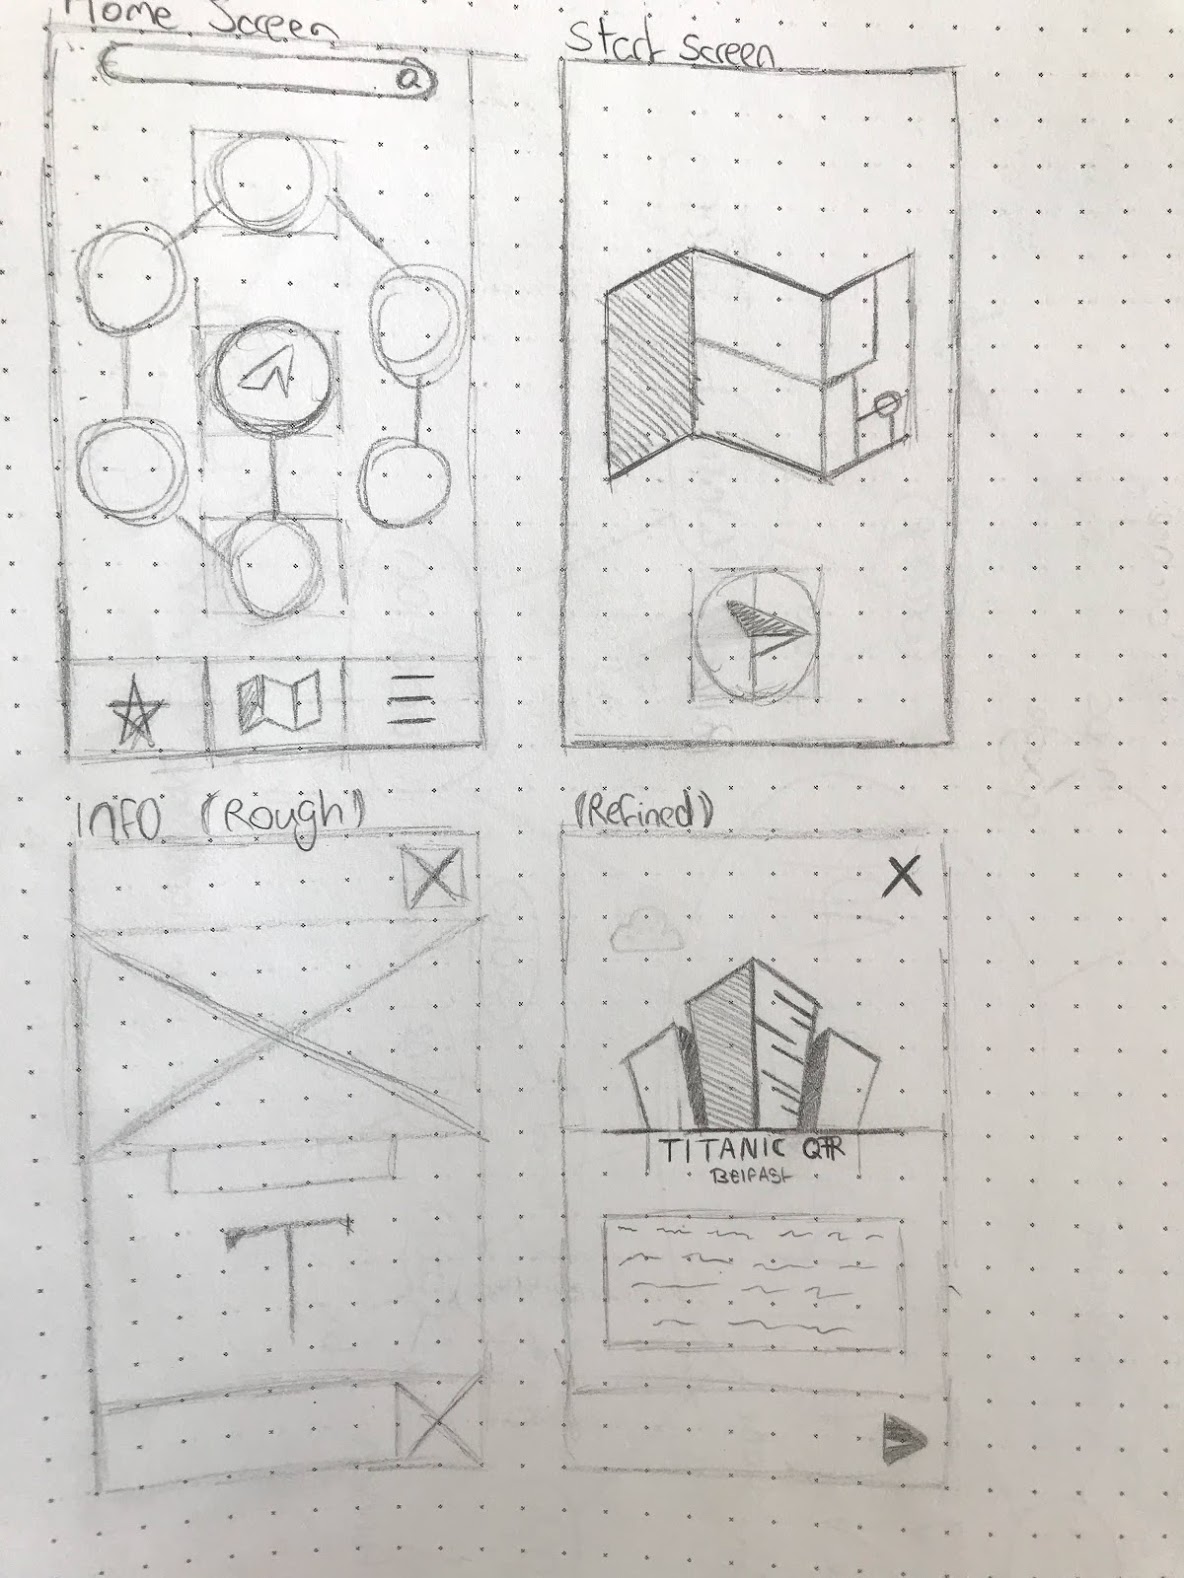 Home Screen
Start Screen
INFO (Rough)
(Refined)
TITANIC QTR
BElFASt